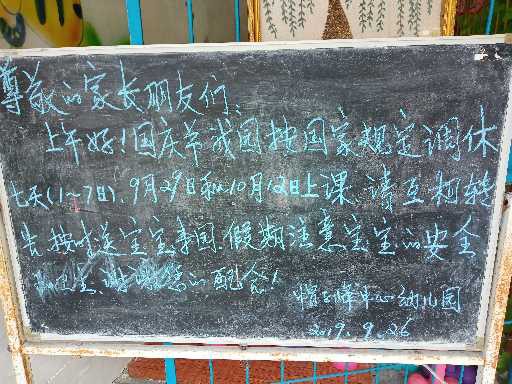 尊敬的家长朋友们、
上午好！国庆节我园按国家规定调休
七天(1～7日).9月29日和10月12日上课.请互相转
告按时送宝宝来园.假期注意宝宝的安全
和卫生、谢谢您的配合！
中心幼儿园
2019.9.26